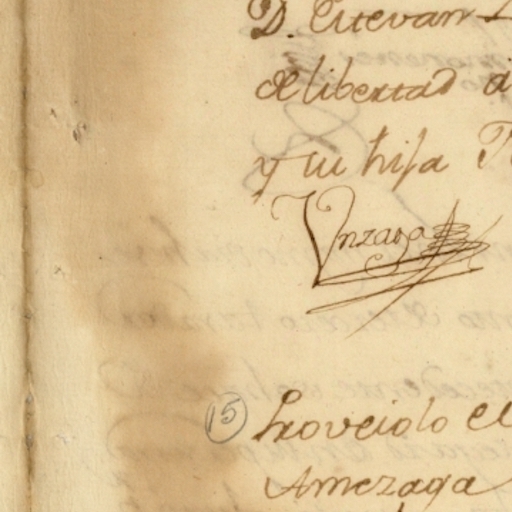 D. Estevan
de libertad a
y su hija
Unzaga
15 Proveiolo el
Amezaga